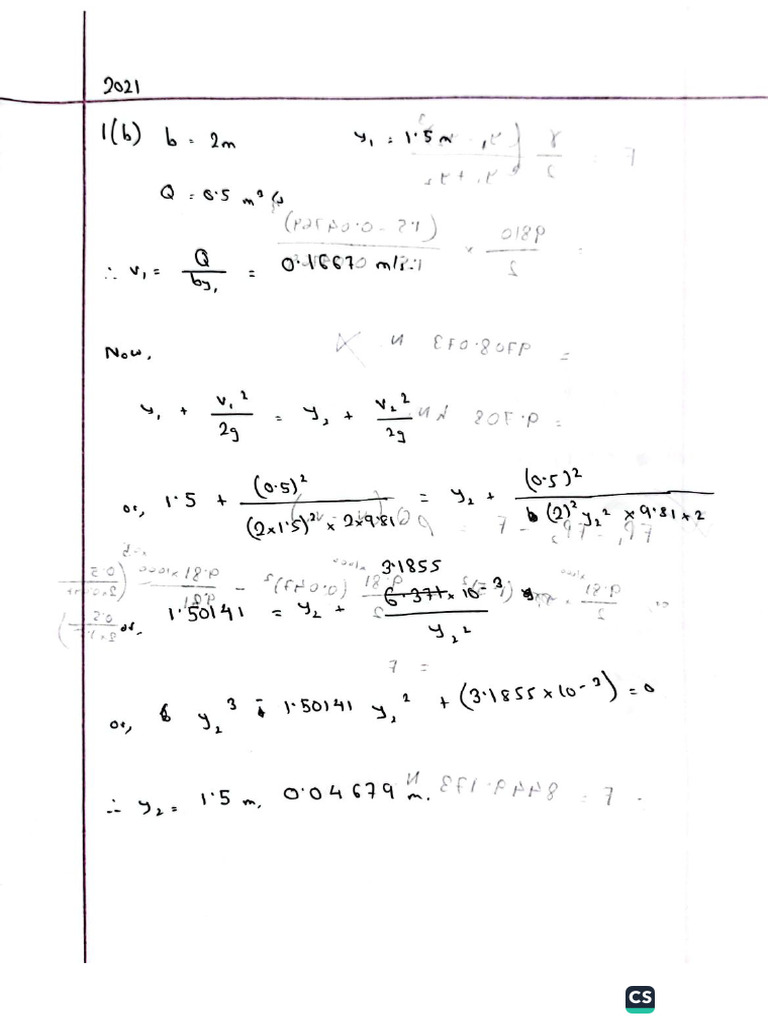 2021
1(b) b = 2m y₁ = 1.5 m
Q = 0.5 m³/s
∴ v₁ = Q / by₁ = 0.16670 m/s
Now,
y₁ + v₁² / 2g = y₂ + v₂² / 2g
or, 1.5 + (0.5)² / (2×1.5)² × 2×9.81 = y₂ + (0.5)² / (2)² y₂² × 9.81 × 2
or, 1.50141 = y₂ + 3.1855 × 10⁻³ / y₂²
or, y₂³ - 1.50141 y₂² + (3.1855 × 10⁻³) = 0
∴ y₂ = 1.5 m, 0.04679 m.
CS